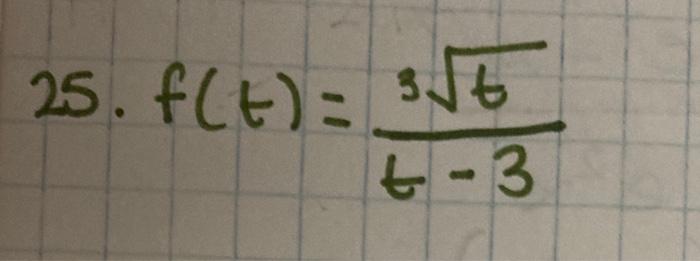 25. f(t) = ³√t / (t - 3)